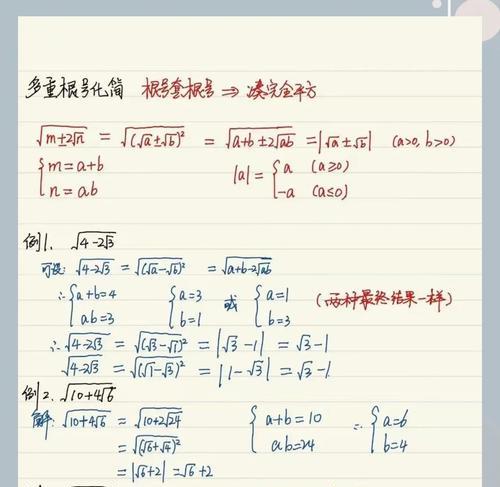 多重根号化简 根号套根号 ⇒ 凑完全平方
√(m±2√n) = √((√a±√b)²) = √(a+b±2√ab) = |√a±√b| (a>0, b>0)
{ m=a+b
n=ab
|a| = { a (a≥0)
-a (a≤0)
例1. √(4-2√3)
可设: √(4-2√3) = √((√a-√b)²) = √(a+b-2√ab)
∴ { a+b=4
ab=3
{ a=3
b=1
或 { a=1
b=3
(两种最终结果一样)
∴ √(4-2√3) = √((√3-√1)²) = |√3-1| = √3-1
√(4-2√3) = √((√1-√3)²) = |1-√3| = √3-1
例2. √(10+4√6)
解: √(10+4√6) = √(10+2√24)
= √((√6+√4)²)
= |√6+2| = √6+2
{ a+b=10
ab=24
∴ { a=6
b=4